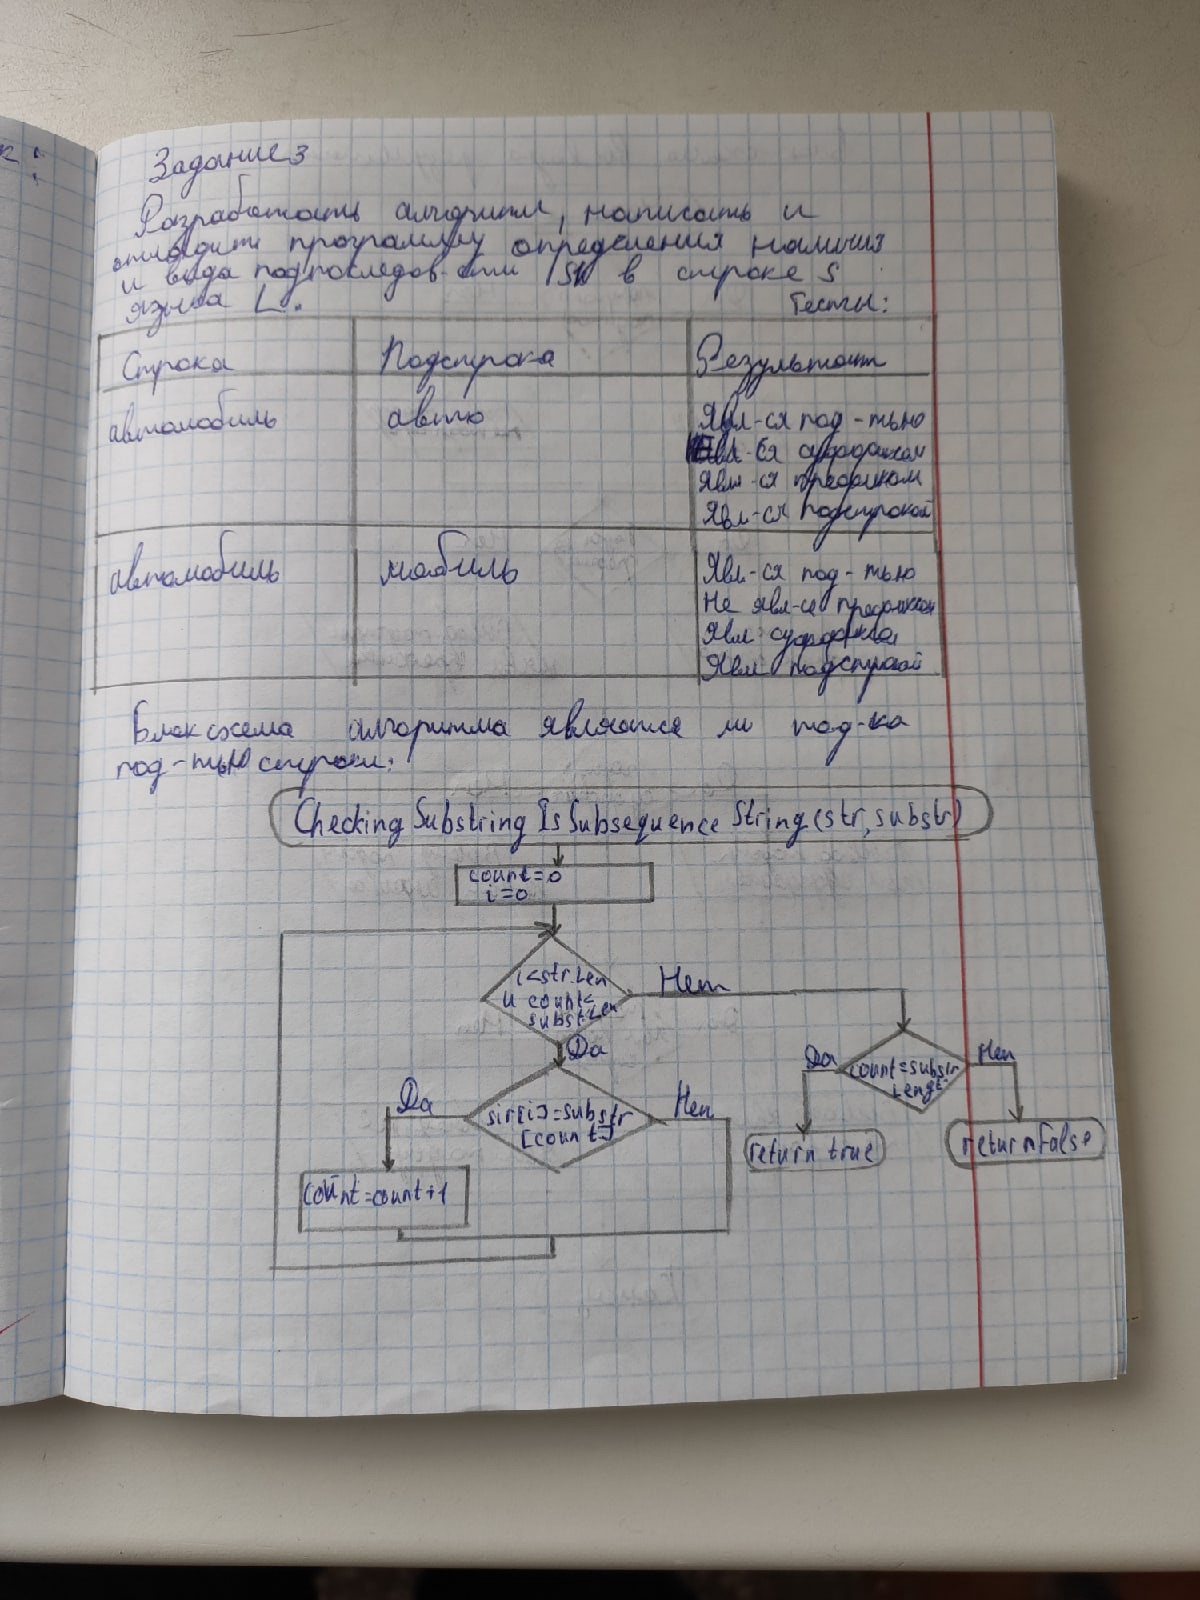 Задание 3
Разработать алгоритм, написать и
отладить программу определения наличия
и вида подпоследов-сти в строке s
языка L.
Тесты:
Строка Подстрока Результат
автомобиль авто Явл-ся под-тью
Не явл-ся суффиксом
Явл-ся префиксом
Явл-ся подстрокой
автомобиль мобиль Явл-ся под-тью
Не явл-ся префиксом
Явл суффиксом
Явл подстрокой
Блоксхема алгоритма является ли под-ка
под-тью строки:
Checking Substring Is Subsequence String (str, substr)
count=0
i=0
i<str.Len
и count<
substr.Len
Нет
Да
count=substr
Lengt
Да
Нет
str[i]=substr
[count]
Да
Нет
return true
return False
count=count+1